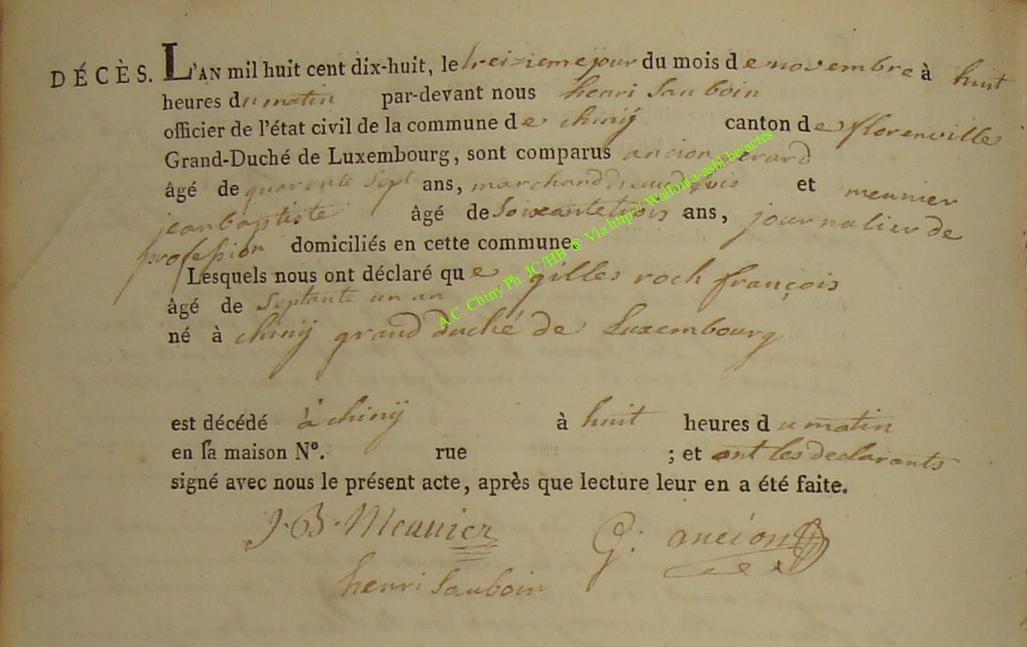 DÉCÈS. L'AN mil huit cent dix-huit, le treizieme jour du mois de novembre à huit
heures du matin par-devant nous henri Sauboin
officier de l'état civil de la commune de chinÿ canton de florenville
Grand-Duché de Luxembourg, sont comparus ancion
âgé de quarente sept ans, marchand et meunier
jean baptiste âgé de Soixante trois ans, journalier de
profession domiciliés en cette commune.
Lesquels nous ont déclaré que gilles roch françois
âgé de Septante un an
né à chinÿ grand duché de Luxembourg
est décédé à chinÿ à huit heures du matin
en sa maison N°. rue ; et ont les declarants
signé avec nous le présent acte, après que lecture leur en a été faite.
J. B. Meunier G: ancion
henri Sauboin
A.C. Chiny Ph. JC/HB © Via http://Wallonia-asbl.be/actes